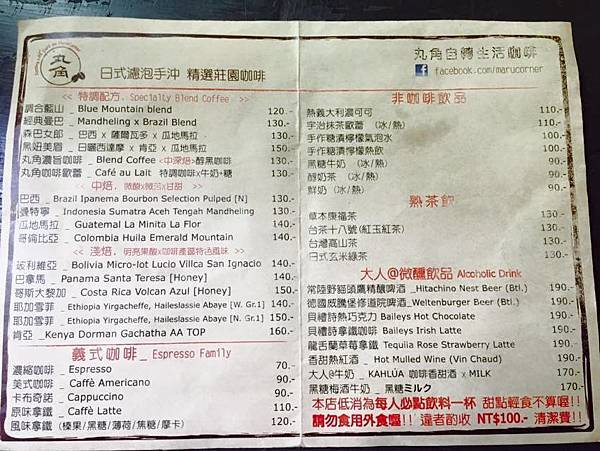 丸角
日式濾泡手沖 精選莊園咖啡
<< 特調配方. Specialty Blend Coffee >>
調合藍山 _ Blue Mountain blend 120.-
經典曼巴 _ Mandheling x Brazil Blend 130.-
森巴女郎 _ 巴西 x 薩爾瓦多 x 瓜地馬拉 130.-
黑妞美眉 _ 日曬西達摩 x 肯亞 x 瓜地馬拉 150.-
丸角濃旨咖啡 _ Blend Coffee <中深焙>醇黑咖啡 130.-
丸角咖啡歐蕾 _ Café au Lait 特調咖啡x牛奶+糖 130.-
<< 中焙. 微酸x微苦x甘甜 >>
巴西 _ Brazil Ipanema Bourbon Selection Pulped [N] 130.-
曼特寧 _ Indonesia Sumatra Aceh Tengah Mandheling 130.-
瓜地馬拉 _ Guatemal La Minita La Flor 140.-
哥倫比亞 _ Colombia Huila Emerald Mountain 140.-
<< 淺焙. 明亮果酸x咖啡產區特色風味 >>
玻利維亞 _ Bolivia Micro-lot Lucio Villca San Ignacio 140.-
巴拿馬 _ Panama Santa Teresa [Honey] 140.-
哥斯大黎加 _ Costa Rica Volcan Azul [Honey] 150.-
耶加雪菲 _ Ethiopia Yirgacheffe, Haileslassie Abaye [W. Gr.1] 140.-
耶加雪菲 _ Ethiopia Yirgacheffe, Haileslassie Abaye [N. Gr.1] 150.-
肯亞 _Kenya Dorman Gachatha AA TOP 160.-
義式咖啡_ Espresso Family
濃縮咖啡 _ Espresso 70.-
美式咖啡 _ Caffè Americano 90.-
卡布奇諾 _ Cappuccino 90.-
原味拿鐵 _ Caffè Latte 110.-
風味拿鐵 (榛果/黑糖/薄荷/焦糖/摩卡) 120.-
丸角自轉生活咖啡
facebook.com/marucorner
非咖啡飲品
熱義大利濃可可 110.-
宇治抹茶歐蕾 (冰/熱) 110.-
手作糖漬檸檬氣泡水 100.-
手作糖漬檸檬熱飲 100.-
黑糖牛奶 (冰/熱) 100.-
醇奶茶 (冰/熱) 100.-
鮮奶 (冰/熱) 90.-
熱茶飲
草本康福茶 130.-
台茶十八號(紅玉紅茶) 130.-
台灣高山茶 130.-
日式玄米綠茶 130.-
大人@微醺飲品 Alcoholic Drink
常陸野貓頭鷹精釀啤酒 _Hitachino Nest Beer (Btl.) 190.-
德國威騰堡修道院啤酒_Weltenburger Beer (Btl.) 190.-
貝禮詩熱巧克力 Baileys Hot Chocolate 190.-
貝禮詩拿鐵咖啡 Baileys Irish Latte 190.-
龍舌蘭草莓拿鐵 Tequila Rose Strawberry Latte 190.-
香甜熱紅酒 _ Hot Mulled Wine (Vin Chaud) 190.-
大人@牛奶 _ KAHLÚA 咖啡香甜酒 x MILK 170.-
黑糖梅酒牛奶 _ 黑糖ミルク 170.-
本店低消為每人必點飲料一杯 甜點輕食不算喔!!
請勿食用外食喔!! 違者酌收 NT$100.- 清潔費!!